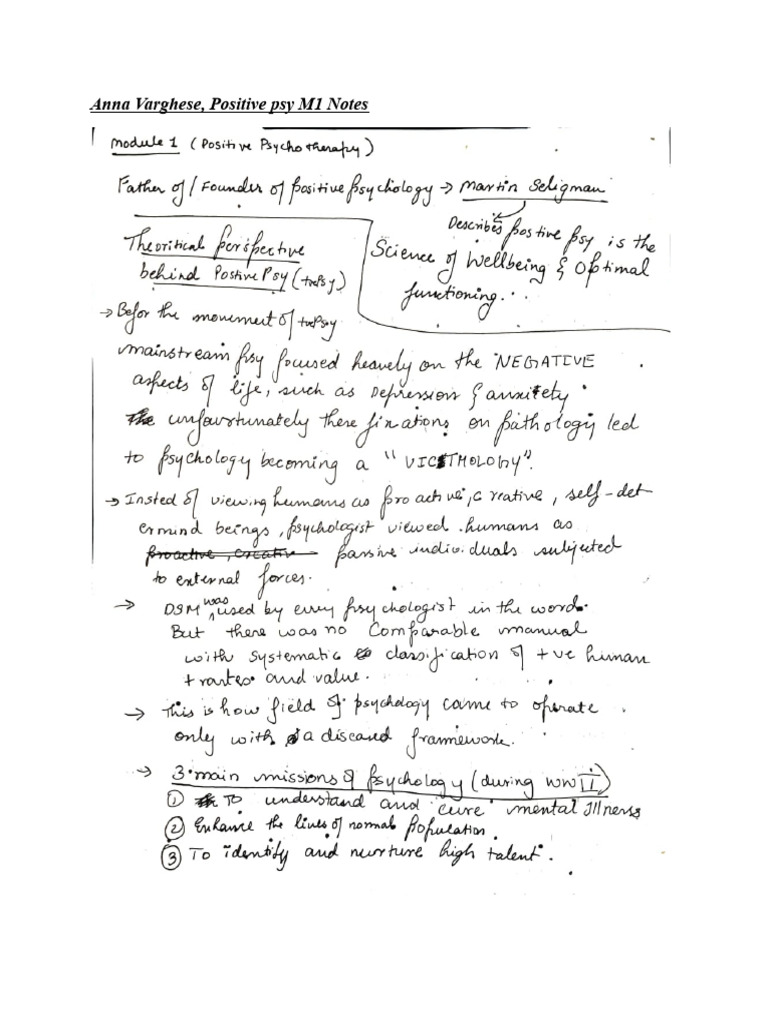 Anna Varghese, Positive psy M1 Notes
Module 1 (Positive Psychotherapy)
Father of / Founder of positive psychology → Martin Seligman
Describes postive psy is the
Science of Wellbeing & Optimal
functioning...
Theoritical perspective
behind Postive Psy (+vePsy)
→ Befor the movement of +vePsy
mainstream psy focused heavely on the NEGATIVE
aspects of life, such as Depression & anxitety.
unfourtunately there fixations on pathology led
to psychology becoming a "VICTMOLOGY".
→ Insted of viewing humans as proactive, creative, self-det
ermind beings, psychologist viewed humans as
proactive, creative passive individuals subjected
to external forces.
→ DSM was used by every psychologist in the word.
But there was no Comparable manual
with systematic classification of +ve human
traites and value.
→ This is how field of psychology came to operate
only with a diseased framework.
→ 3 main missions of psychology (during WW II)
① To understand and cure mental illness
② Enhance the lives of normal population.
③ To identify and nurture high talent.